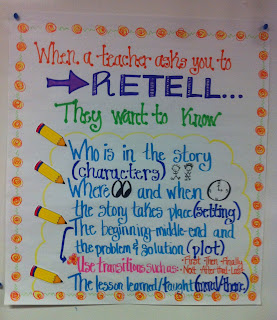 When a teacher asks you to
RETELL...
They want to know
Who is in the story
(characters)
Where and when
the story takes place (setting)
The beginning-middle-end and
the problem & solution (plot)
Use transitions such as: - First-Then-Finally
- Next-After that-Last
The lesson learned/taught